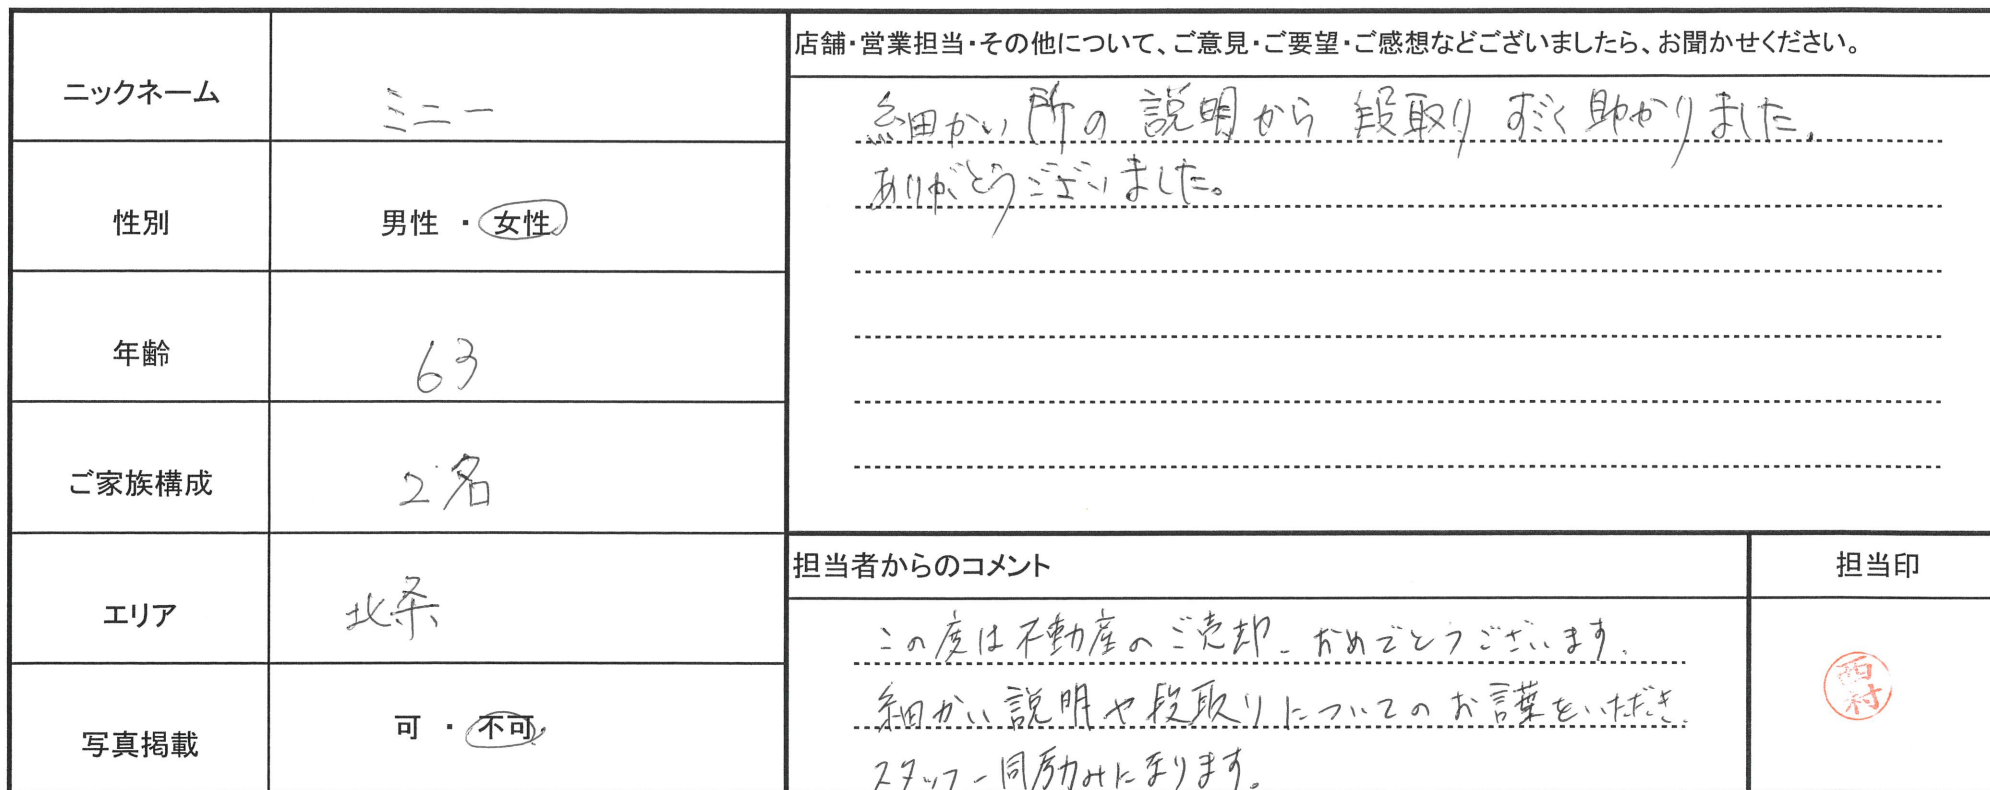 ニックネーム
ミニー
性別
男性 ・ 女性
年齢
63
ご家族構成
2名
エリア
北条
写真掲載
可 ・ 不可
店舗・営業担当・その他について、ご意見・ご要望・ご感想などございましたら、お聞かせください。
細かい所の説明から段取りすごく助かりました。
ありがとうございました。
担当者からのコメント
この度は不動産のご売却、おめでとうございます。
細かい説明や段取りについてのお言葉をいただき、
スタッフ一同励みになります。
担当印
西村